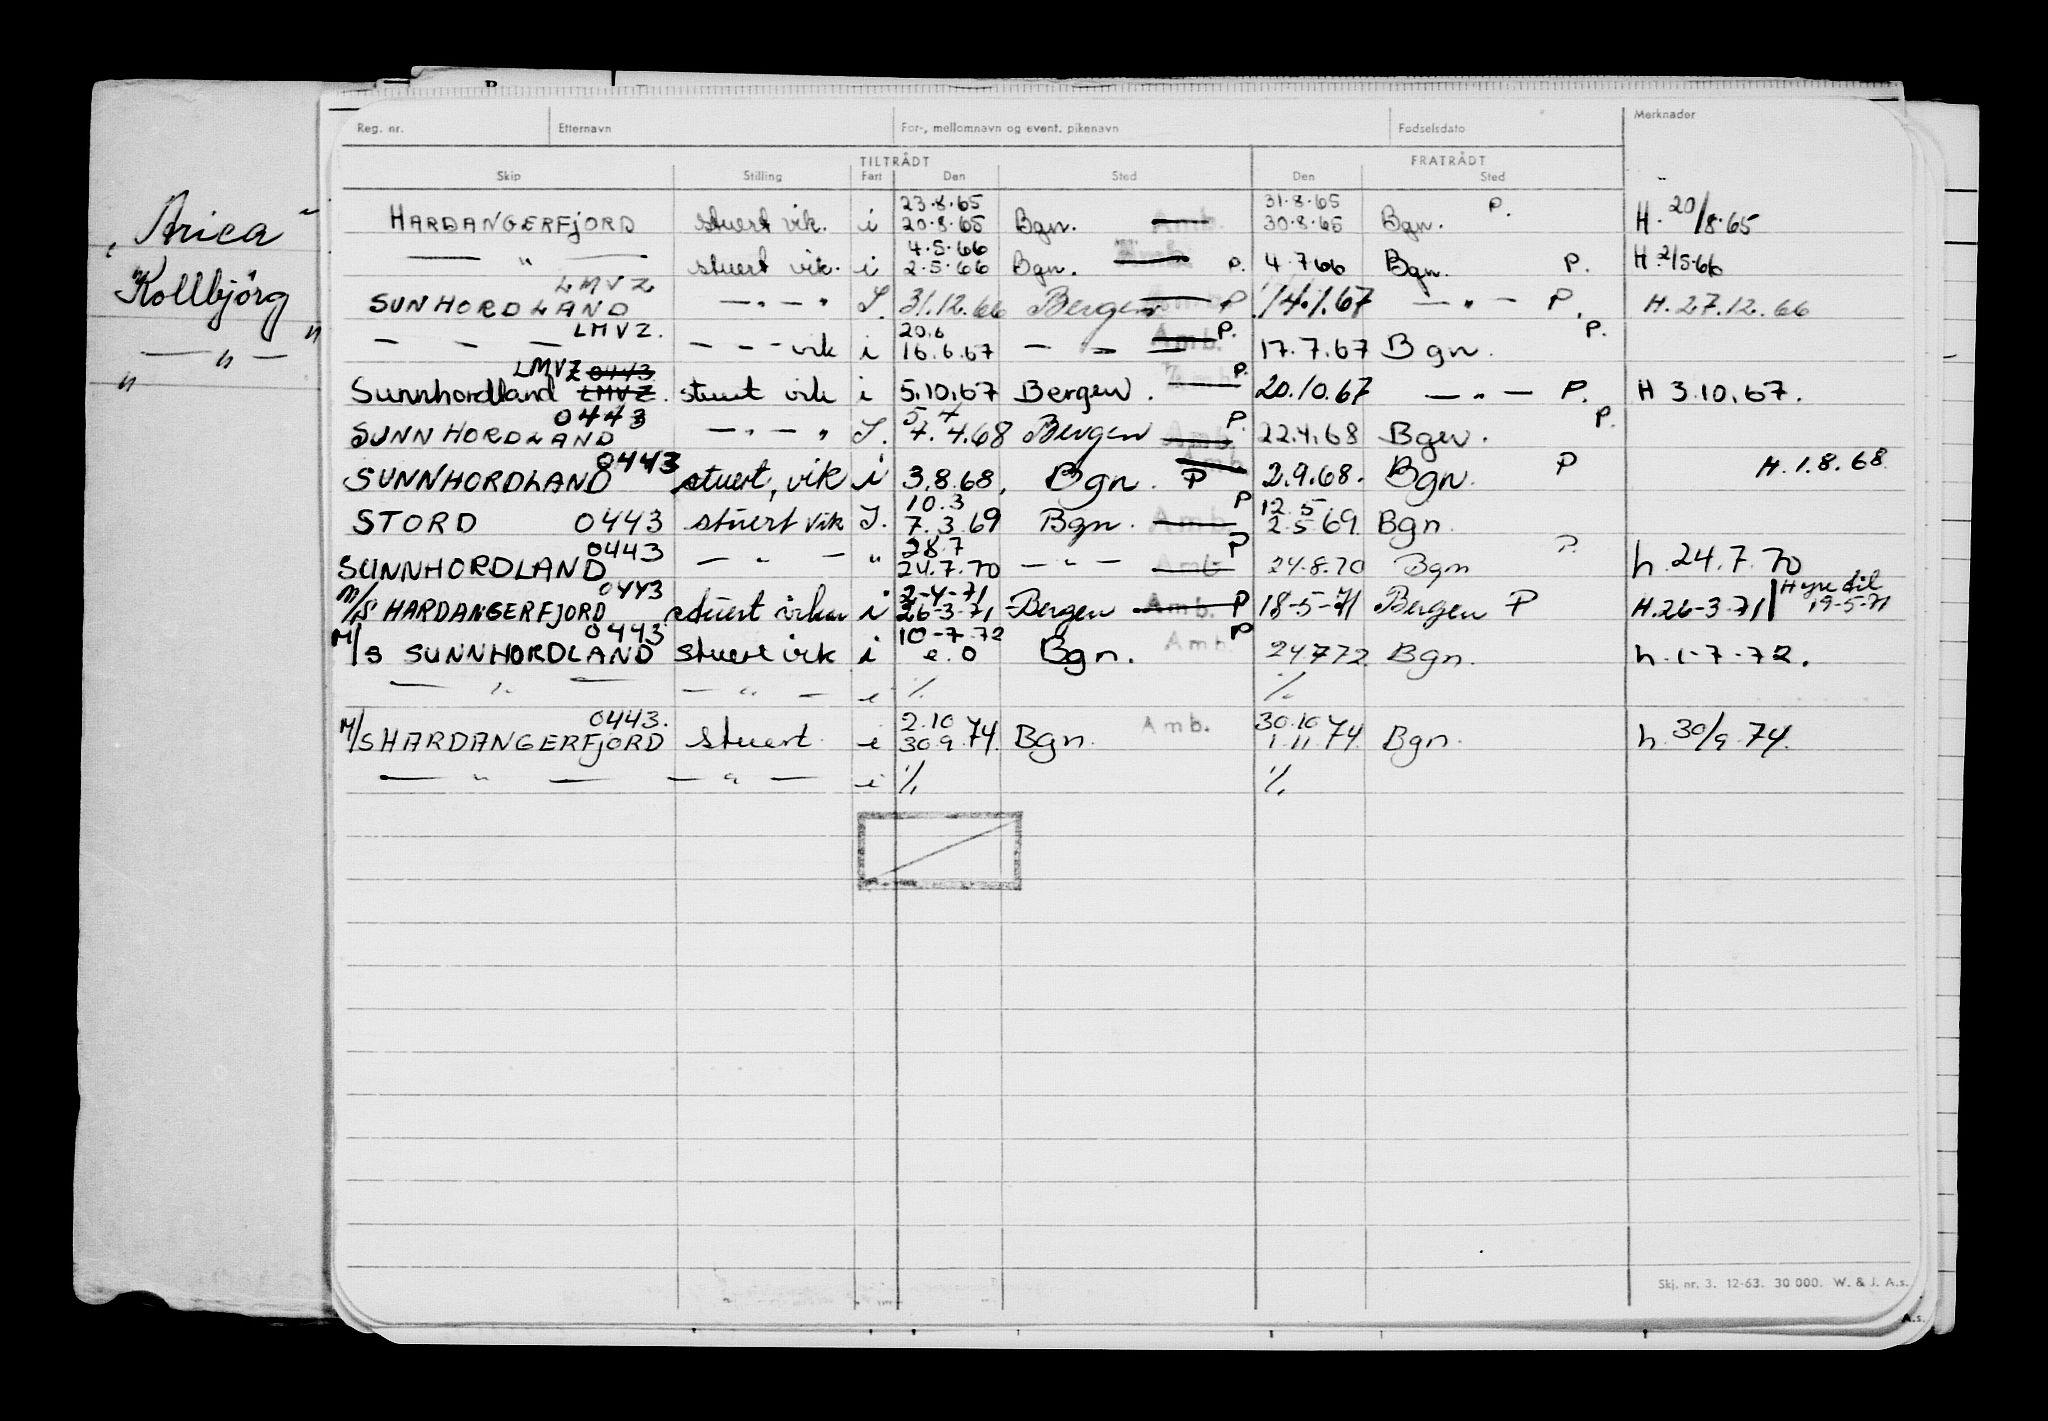 „Arica"
"Kollbjörg"
— " —
"
Reg. nr. Etternavn For-, mellomnavn og event. pikenavn Fødselsdato Merknader
TILTRÅDT FRATRÅDT
Skip Stilling Fart Den Sted Den Sted
23.8.65 31.8.65 P.
HARDANGERFJORD stuert vik. i 20.8.65 Bgn. Amb. 30.8.65 Bgn. H. 20/8.65
4.5.66
— " — stuert vik. i 2.5.66 Bgn. Amb. P. 4.7.66 Bgn. P. H. 2/5.66
LMVZ
SUNHORDLAND — " — " I. 31.12.66 Bergen P. 14.1.67 — " — P. H. 27.12.66
LMVZ. 20.6 P. P.
— — — — - - vik i 16.6.67 — " — Amb. 17.7.67 Bgn.
LMVZ 0443 P.
Sunnhordland LMVZ. stuert vik i 5.10.67 Bergen. Amb. 20.10.67 — " — P. H 3.10.67.
0443 5 4 P. P.
SUNNHORDLAND — " — " I. 7.4.68 Bergen Amb. 22.4.68 Bgn.
0443 Amb
SUNNHORDLAND stuert, vik i 3.8.68. Bgn. P 2.9.68. Bgn. P H. 1.8.68
10.3 P 12.5
STORD 0443 stuert vik I. 7.3.69 Bgn. Amb. 2.5.69. Bgn.
0443 28.7 P P.
SUNNHORDLAND — " — " 24.7.70 — " — Amb 24.8.70 Bgn h. 24.7.70
0443 2-4-71 Hyre til
M/S HARDANGERFJORD stuert vikar i 26-3-71 Bergen Amb. P 18-5-71 Bergen P H. 26-3-71 19-5-71
0443 10-7-72 P
M/S SUNNHORDLAND stuert vik i e.o Bgn. Amb. 24.7.72 Bgn. h. 1-7-72.
— " — — " — i % %
0443. 2.10 30.10
M/S HARDANGERFJORD stuert i 30.9.74. Bgn. Amb. 1.11.74 Bgn. h. 30/9.74.
— " — — " — i % %
Skj. nr. 3. 12-63. 30 000. W. & J. A.s.
A.s.